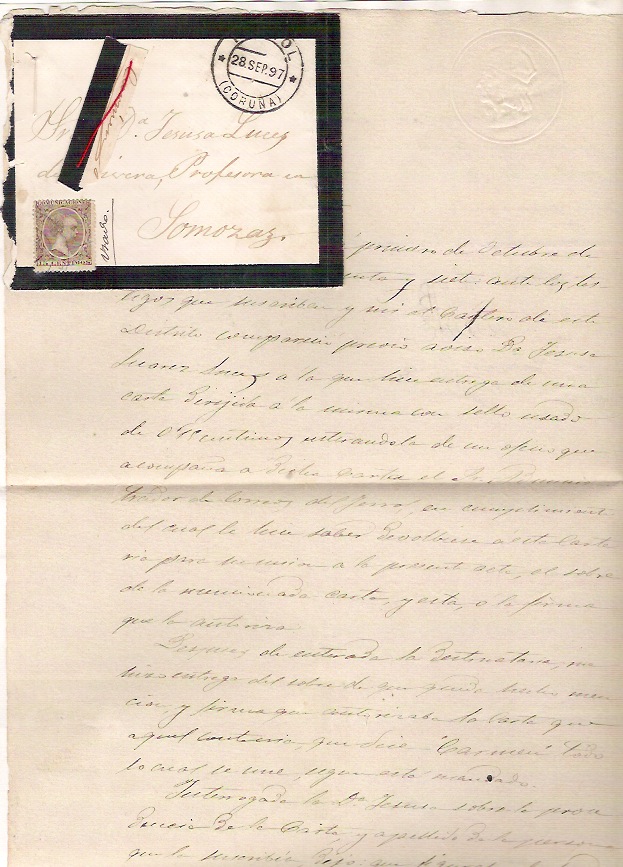 FERROL
28 SEP. 97
(CORUÑA)
Sra. Dª. Jesusa Luces
de Rivera, Profesora en
Somozas.
usado.
15 CENTIMOS
primero de Octubre de
y siete: ante los tes-
tigos que suscriben y mi el Cartero de este
Distrito compareció previo aviso Da Jesusa
Luces a la que hice entrega de una
carta dirijida á la misma con sello usado
de 015 centimos, enterandola de un oficio que
acompaña a dicha Carta el Sr. Adminis
trador de Correos del Ferrol, en cumplimiento
del cual le hice saber devolviera a esta Carte
ria para su union a la presente acta, el sobre
de la mencionada carta, y esta, o la firma
que la autoriza
Despues de enterada la destinataria, me
hizo entrega del sobre de que queda hecha men
cion, y firma que autorizaba la Carta que
aquel contenia, que dice "Carmen" Todo
lo cual se une, segun está mandado.
Interrogada la Da. Jesusa sobre la proce
dencia de la Carta y apellido de la persona
que la suscribia dijo: que